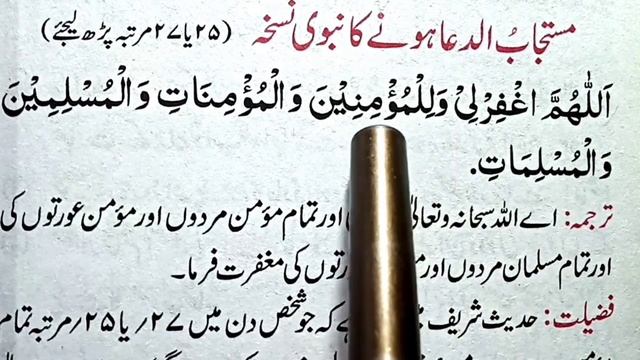 مستجابُ الدعا ہونے کا نبوی نسخہ (۲۵ یا ۲۷ مرتبہ پڑھ لیجئے)
اَللّٰهُمَّ اغْفِرْ لِيْ وَلِلْمُؤْمِنِيْنَ وَالْمُؤْمِنَاتِ وَالْمُسْلِمِيْنَ
وَالْمُسْلِمَاتِ.
ترجمہ: اے اللہ سبحانہ وتعالیٰ اور تمام مؤمن مردوں اور مؤمن عورتوں کی
اور تمام مسلمان مردوں اور عورتوں کی مغفرت فرما۔
فضیلت: حدیث شریف میں ہے کہ جو شخص دن میں ۲۷؍ یا ۲۵؍ مرتبہ تمام